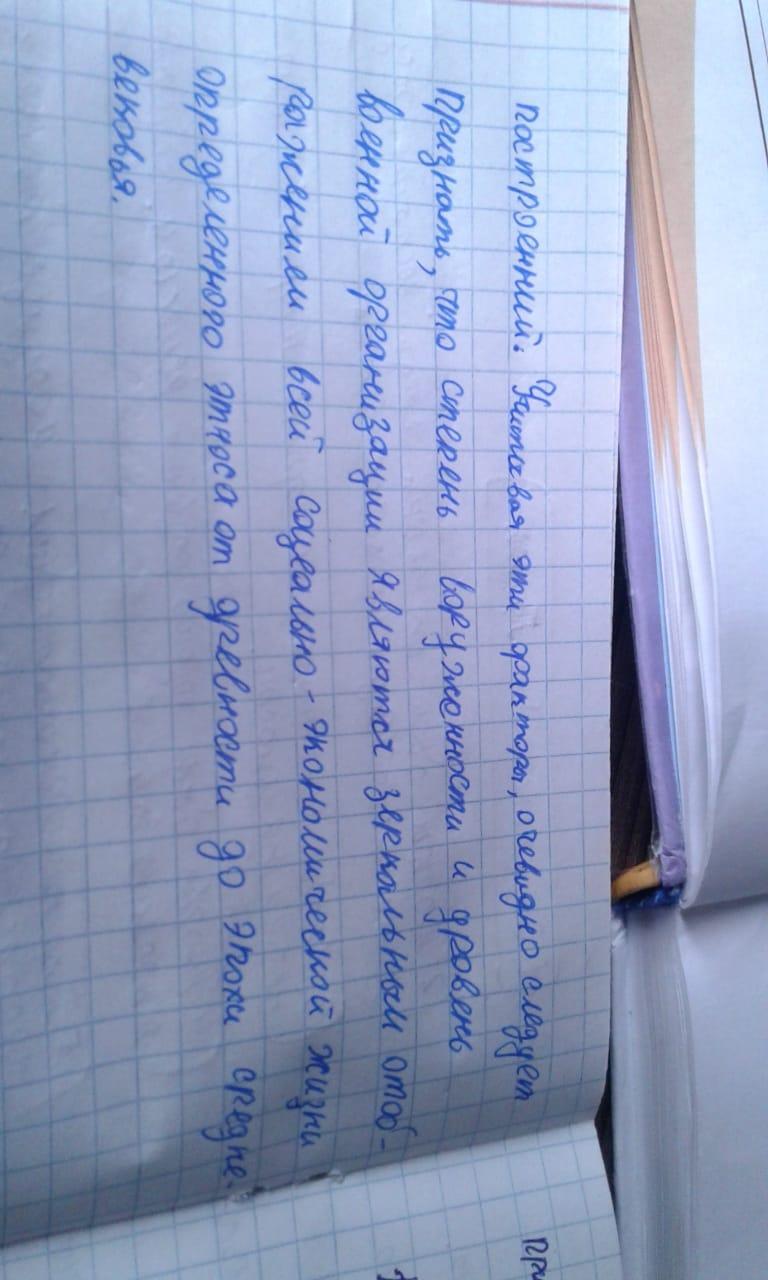 построенний. Учитовая эти факторы, очевидно следует
признать, что степень воружонности и уровень
военной организации являются зеркальным отоб-
рыжением всей социально-экономической жизни
определенного этноса от древности до эпохи средне-
вековья.
при